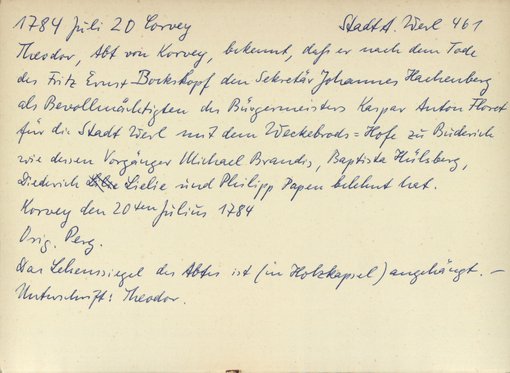 1784 Juli 20 Corvey Stadt A. Werl 461
Theodor, Abt von Korvey, bekennt, daß er nach dem Tode
des Fritz Ernst Bockskopf den Sekretär Johannes Hachenberg
als Bevollmächtigten des Bürgermeisters Kaspar Anton Floret
für die Stadt Werl mit dem Weckebrods=Hofe zu Büderich
wie dessen Vorgänger Michael Brandis, Baptista Hülsberg,
Diederich Lielie und Philipp Papen belehnt hat.
Korvey den 20ten Julius 1784
Orig. Perg.
Das Lehenssiegel des Abtes ist (in Holzkapsel) angehängt. –
Unterschrift: Theodor.